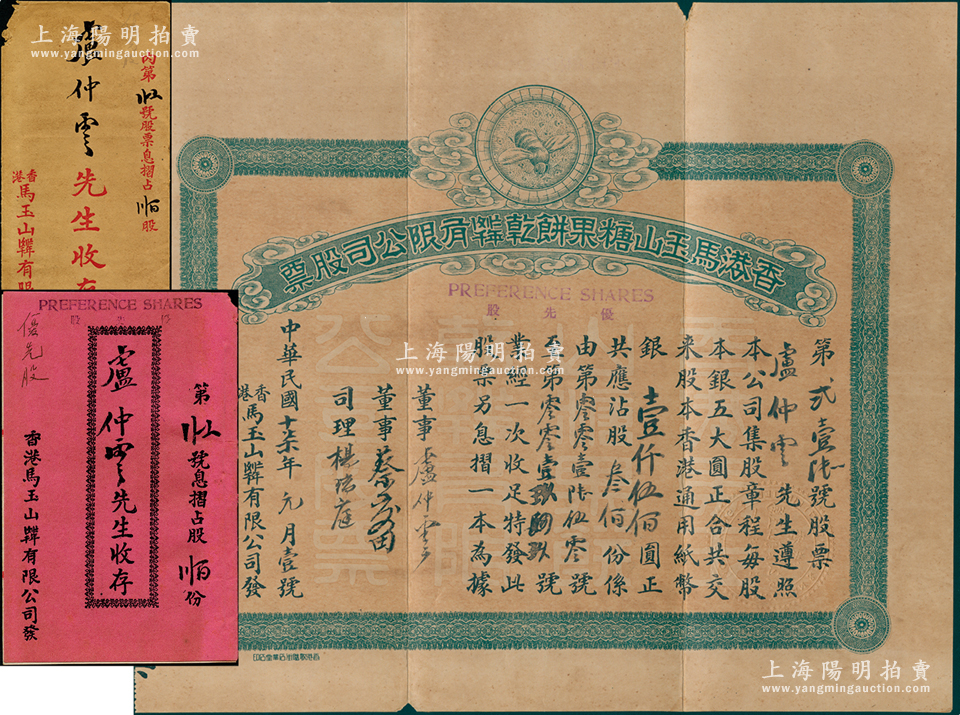 上海陽明拍賣
www.yangmingauction.com
內第
號股票息摺占
股
盧仲雲先生收存
香港馬玉山糖果有限
PREFERENCE SHARES
優先股
優先股
第
號息摺占股
份
盧仲雲先生收存
香港馬玉山
有限公司發
香港馬玉山糖果餅乾
有限公司股票
PREFERENCE SHARES
優先股
第弍壹陆號股票
盧仲雲先生遵照
本公司集股章程每股
本銀五大圓正合共交
來股本香港通用紙幣
銀壹仟伍佰圓正
共應沾股叁佰份係
由第零零壹陆伍零號
至第零零壹
號
業經一次收足特發此
股票另息摺一本為據
董事盧仲雲
董事蔡
司理楊
庭
中華民國十柒年元月壹號
香港馬玉山
有限公司發
上海陽明拍賣
www.yangmingauction.com
上海陽明拍賣
www.yangmingauction.com